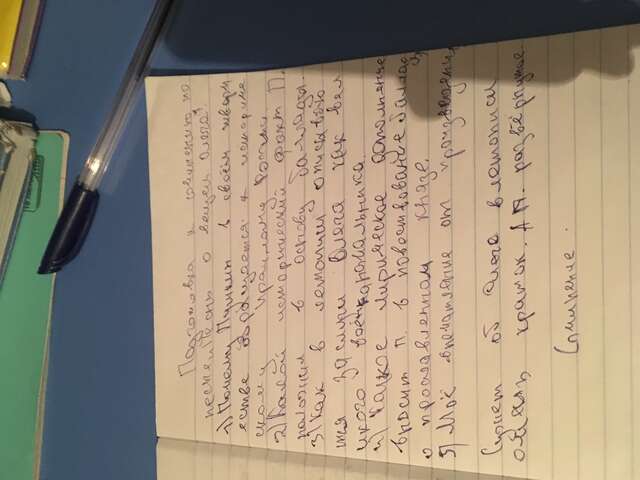 Подготовка к сочинению по
песне "Песнь о вещем Олеге"
1) Почему Пушкин в своём творч
естве обращается к историче
скому прошлому России
2) Какой исторический факт П.
положил в основу баллады.
3) Как в летописи описываю
тся заслуги Олега как вел
икого военачальника.
4) Какое лирическое дополнение
вносит П. в повествование баллады
о прославленном князе.
5) Моё впечатление от произведения
Сюжет об Олеге в летописи
очень краток. А П. развёрнутое.
Сочинение.